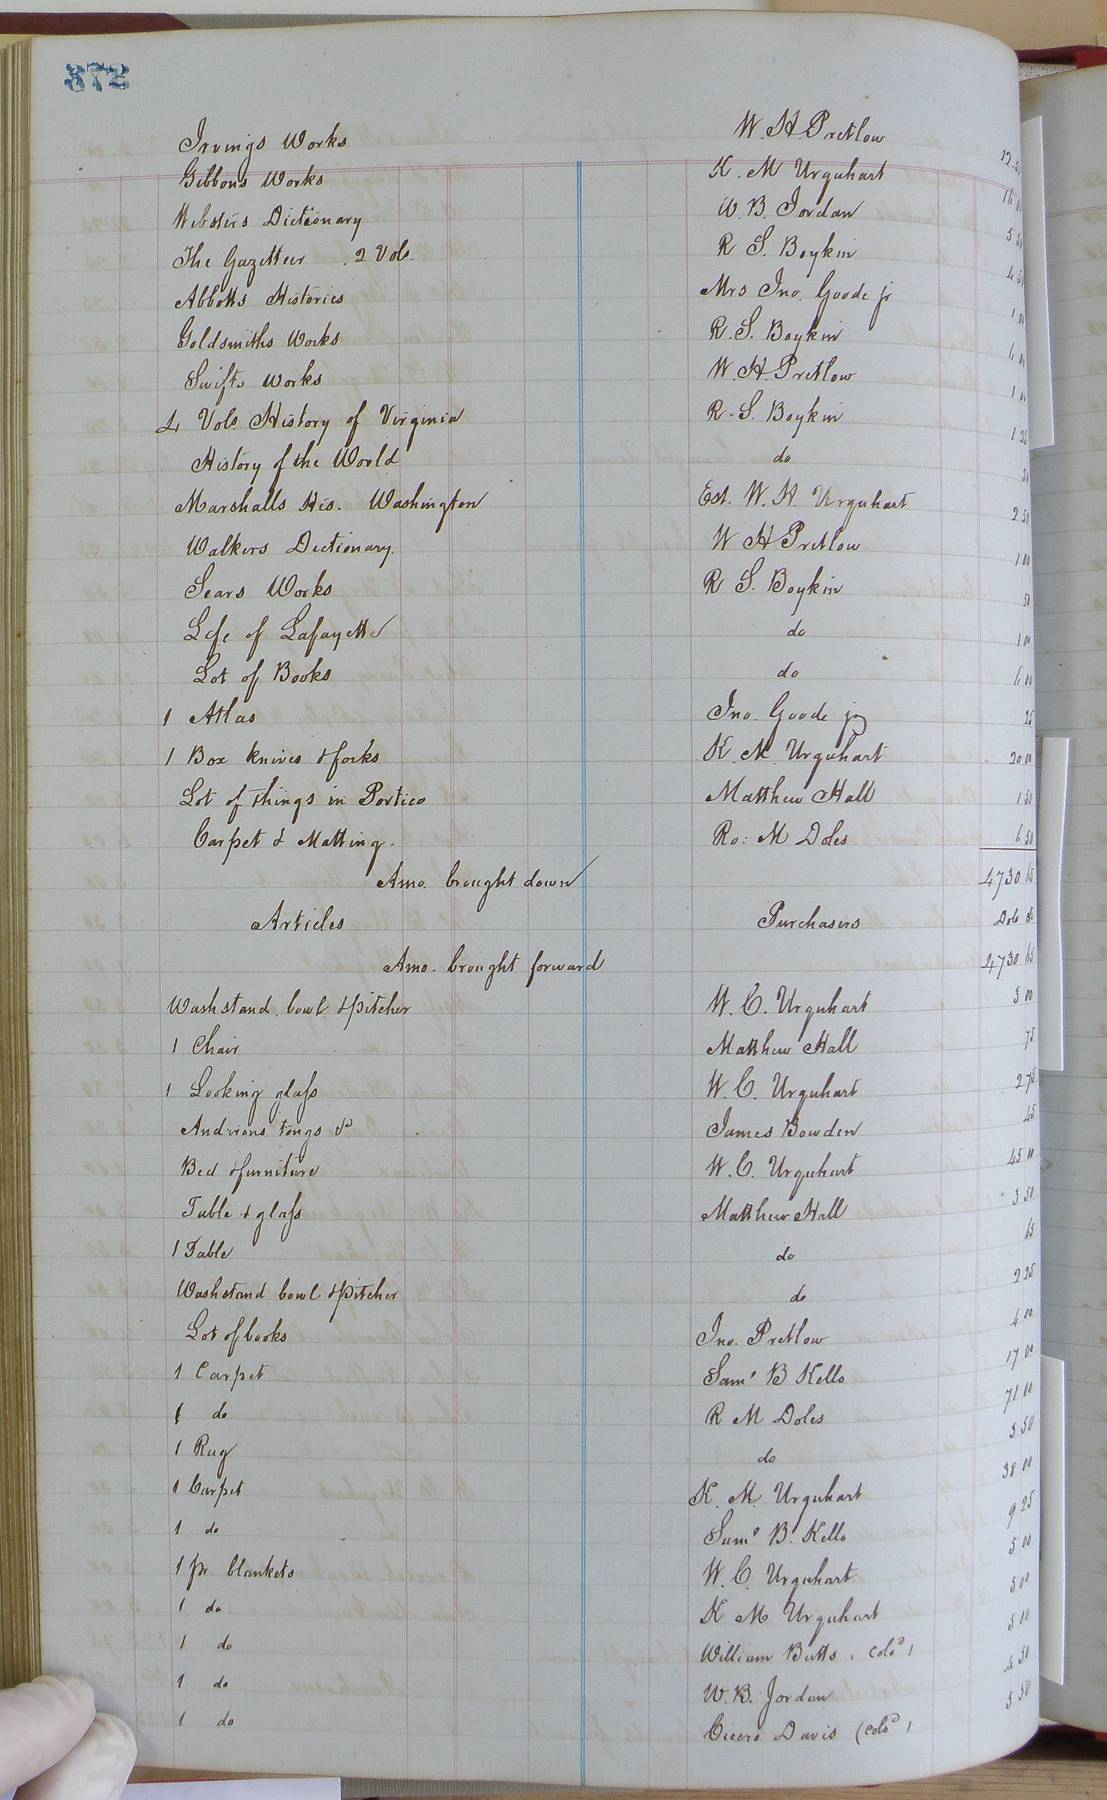 372
Irvings Works W. H. Pretlow 12.50
Gibbons Works K. M Urquhart
Websters Dictionary W. B. Jordan 5 50
The Gazetteer . 2 Vols. R S. Boykin 4 50
Abbotts Histories Mrs Jno. Goode jr 1 00
Goldsmiths Works R. S. Boykin 6 00
Swifts Works W. H. Pretlow 1 00
4 Vols. History of Virginia R. S. Boykin 1 25
History of the World do 50
Marshalls His. Washington Est. W. H. Urquhart 2 50
Walkers Dictionary. W H Pretlow 1 00
Sears Works R S. Boykin 50
Life of Lafayette do 1 00
Lot of Books do 6 00
1 Atlas Jno. Goode jr 25
1 Box knives & forks K. M. Urquhart 20 00
Lot of things in Portico Matthew Hall 1 50
Carpet & Matting. Ro: M Doles 6 50
Amo. brought down 4730 65
Articles Purchasers Dols cts
Amo. brought forward 4730 65
Washstand, bowl & pitcher W. C. Urquhart 5 00
1 Chair Matthew Hall 75
1 Looking glass W. C. Urquhart 2 75
Andirons tongs &c James Bowden 45
Bed & furniture W. C. Urquhart 45 00
Table & glass Matthew Hall 3 50
1 Table do 65
Washstand bowl & pitcher do 2 25
Lot of books Jno. Pretlow 4 00
1 Carpet Saml B Kello 17 00
1 do R M Doles 71 00
1 Rug do 3 50
1 Carpet K. M. Urquhart 38 00
1 do Saml B. Kello 9 25
1 pr. blankets W. C. Urquhart 5 00
1 do K M Urquhart 5 00
1 do William Butts, (cold) 5 00
1 do W. B. Jordan 4 50
1 do Cicero Davis (cold) 5 50